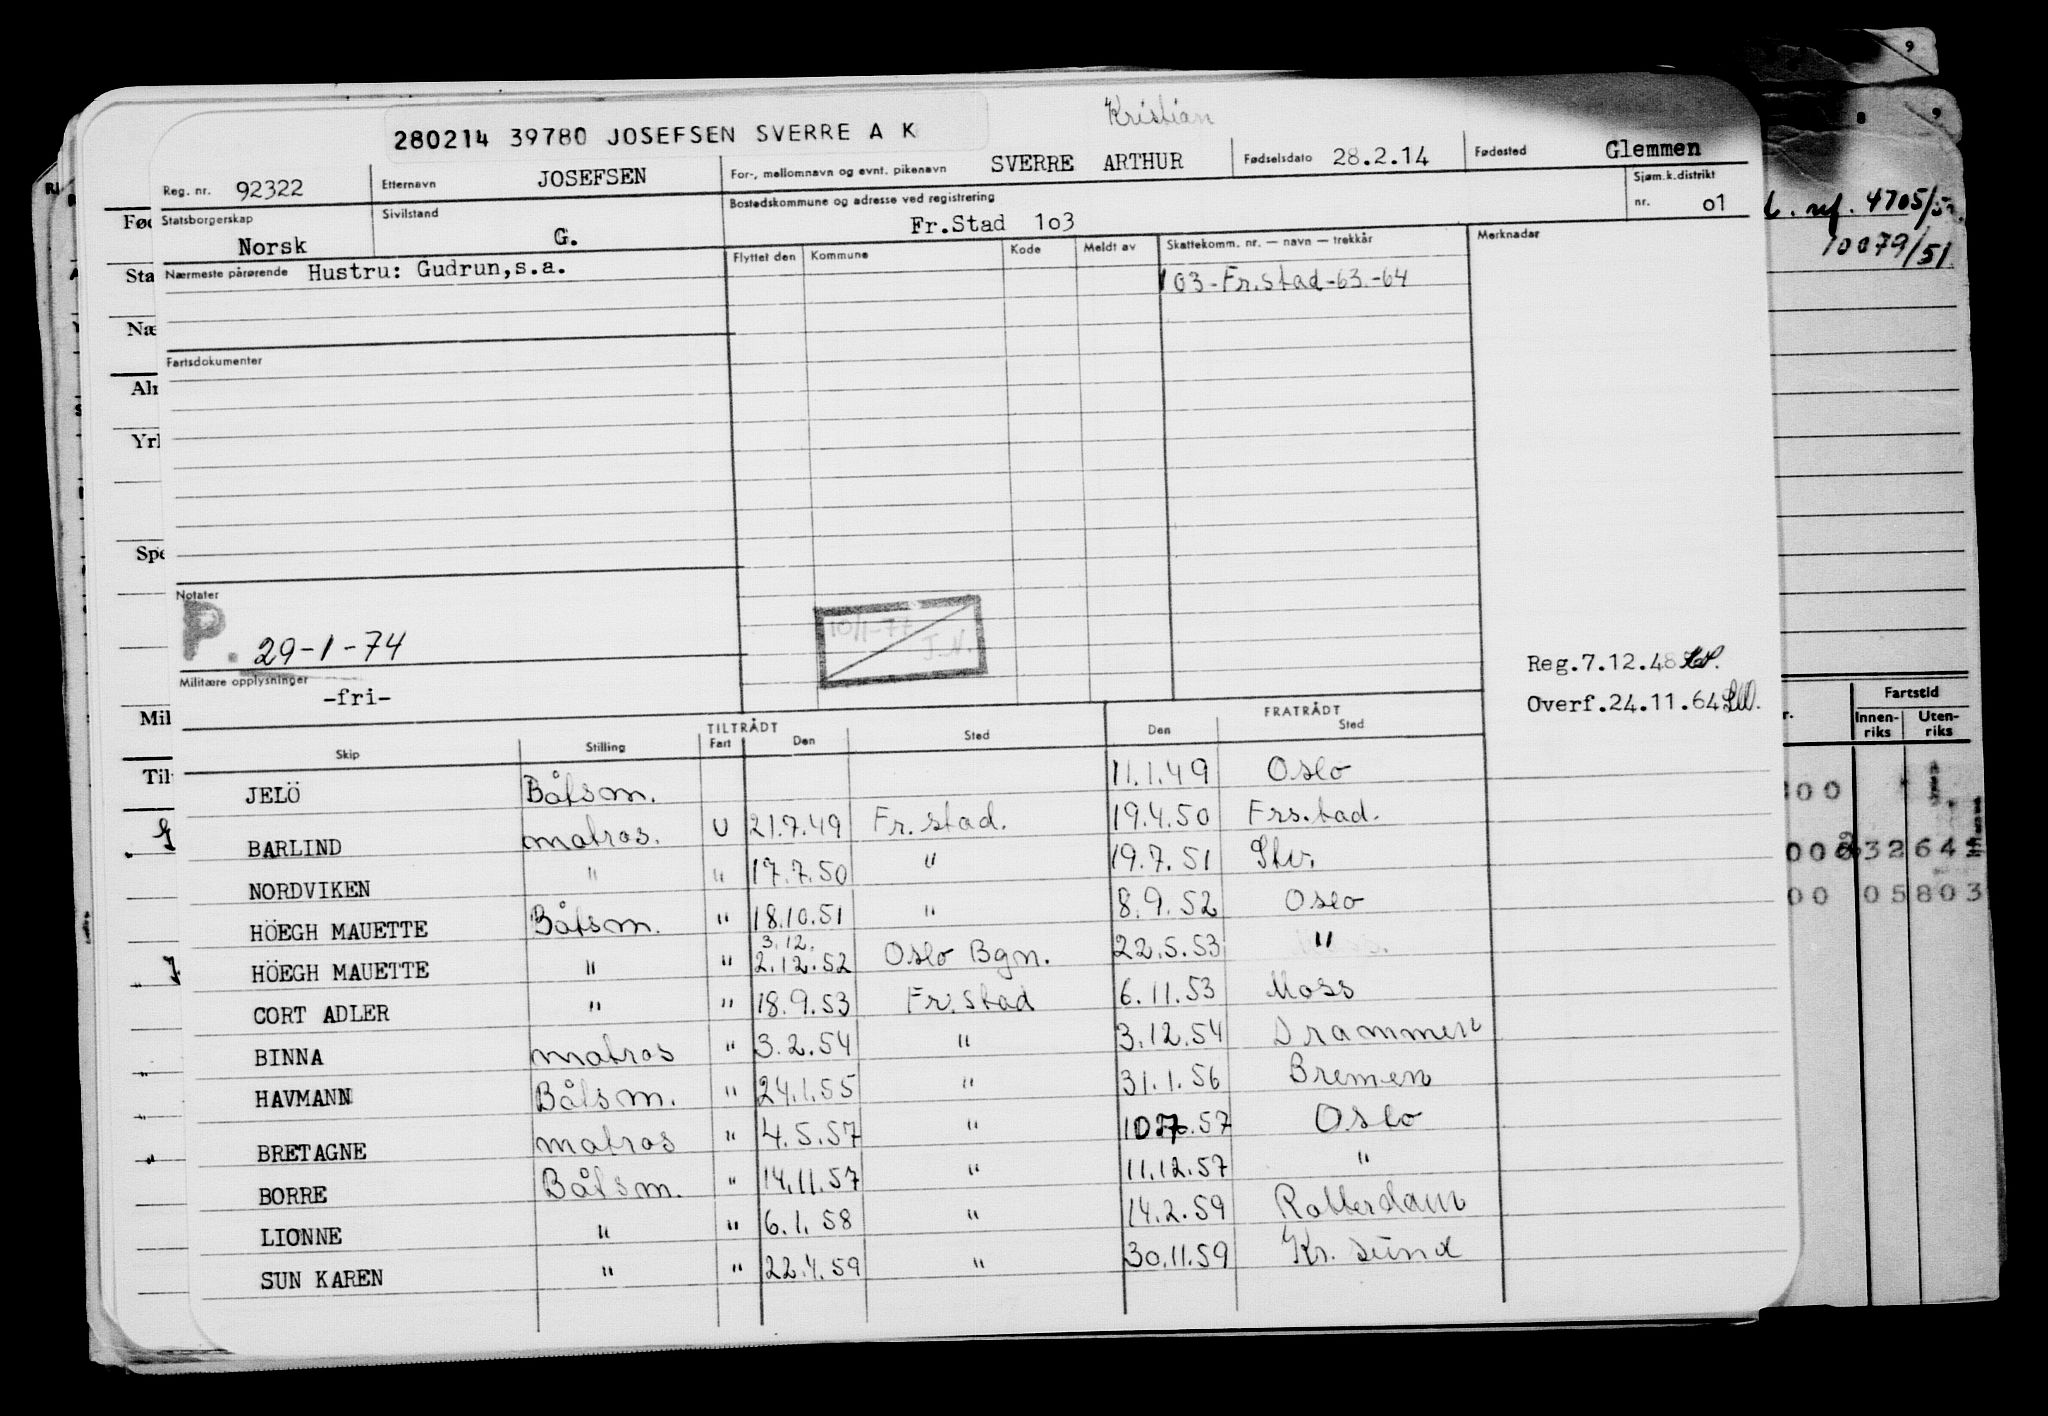 Kristian
280214 39780 JOSEFSEN SVERRE A K
Reg. nr. 92322 Etternavn JOSEFSEN For-, mellomnavn og evnt. pikenavn SVERRE ARTHUR Fødselsdato 28.2.14 Fødested Glemmen
Statsborgerskap Norsk Sivilstand G. Bostedskommune og adresse ved registrering Fr.Stad 1o3 Sjøm.k.distrikt nr. o1
Nærmeste pårørende Hustru: Gudrun,s.a. Flyttet den Kommune Kode Meldt av Skattekomm. nr. — navn — trekkår Merknader
103-Fr.stad-63-64
Fartsdokumenter
Notater
P. 29-1-74
10/1-77 J.N.
Militære opplysninger
-fri-
Reg.7.12.48
Overf.24.11.64
TILTRÅDT FRATRÅDT
Skip Stilling Fart Den Sted Den Sted
JELÖ Båtsm. 11.1.49 Oslo
BARLIND matros. U 21.7.49 Fr.stad. 19.4.50 Frs.tad.
NORDVIKEN " " 17.7.50 " 19.7.51 Stv.
HÖEGH MAUETTE Båtsm. " 18.10.51 " 8.9.52 Oslo
3.12.
HÖEGH MAUETTE " " 2.12.52 Oslo Bgn. 22.5.53 "
CORT ADLER " " 18.9.53 Fr.stad 6.11.53 Moss
BINNA matros " 3.2.54 " 3.12.54 Drammen
HAVMANN Båtsm. " 24.1.55 " 31.1.56 Bremen
BRETAGNE matros " 4.5.57 " 57 Oslo
BORRE Båtsm. " 14.11.57 " 11.12.57 "
LIONNE " " 6.1.58 " 14.2.59 Rotterdam
SUN KAREN " " 22.4.59 " 30.11.59 Kr.sund
Fød
Sta
Næ
Alm
Yrk
Spe
Mil
Til
9
8 9
4705/51
10079/51
Fartstid
Innen-riks Uten-riks
00
32 64
00 05 803